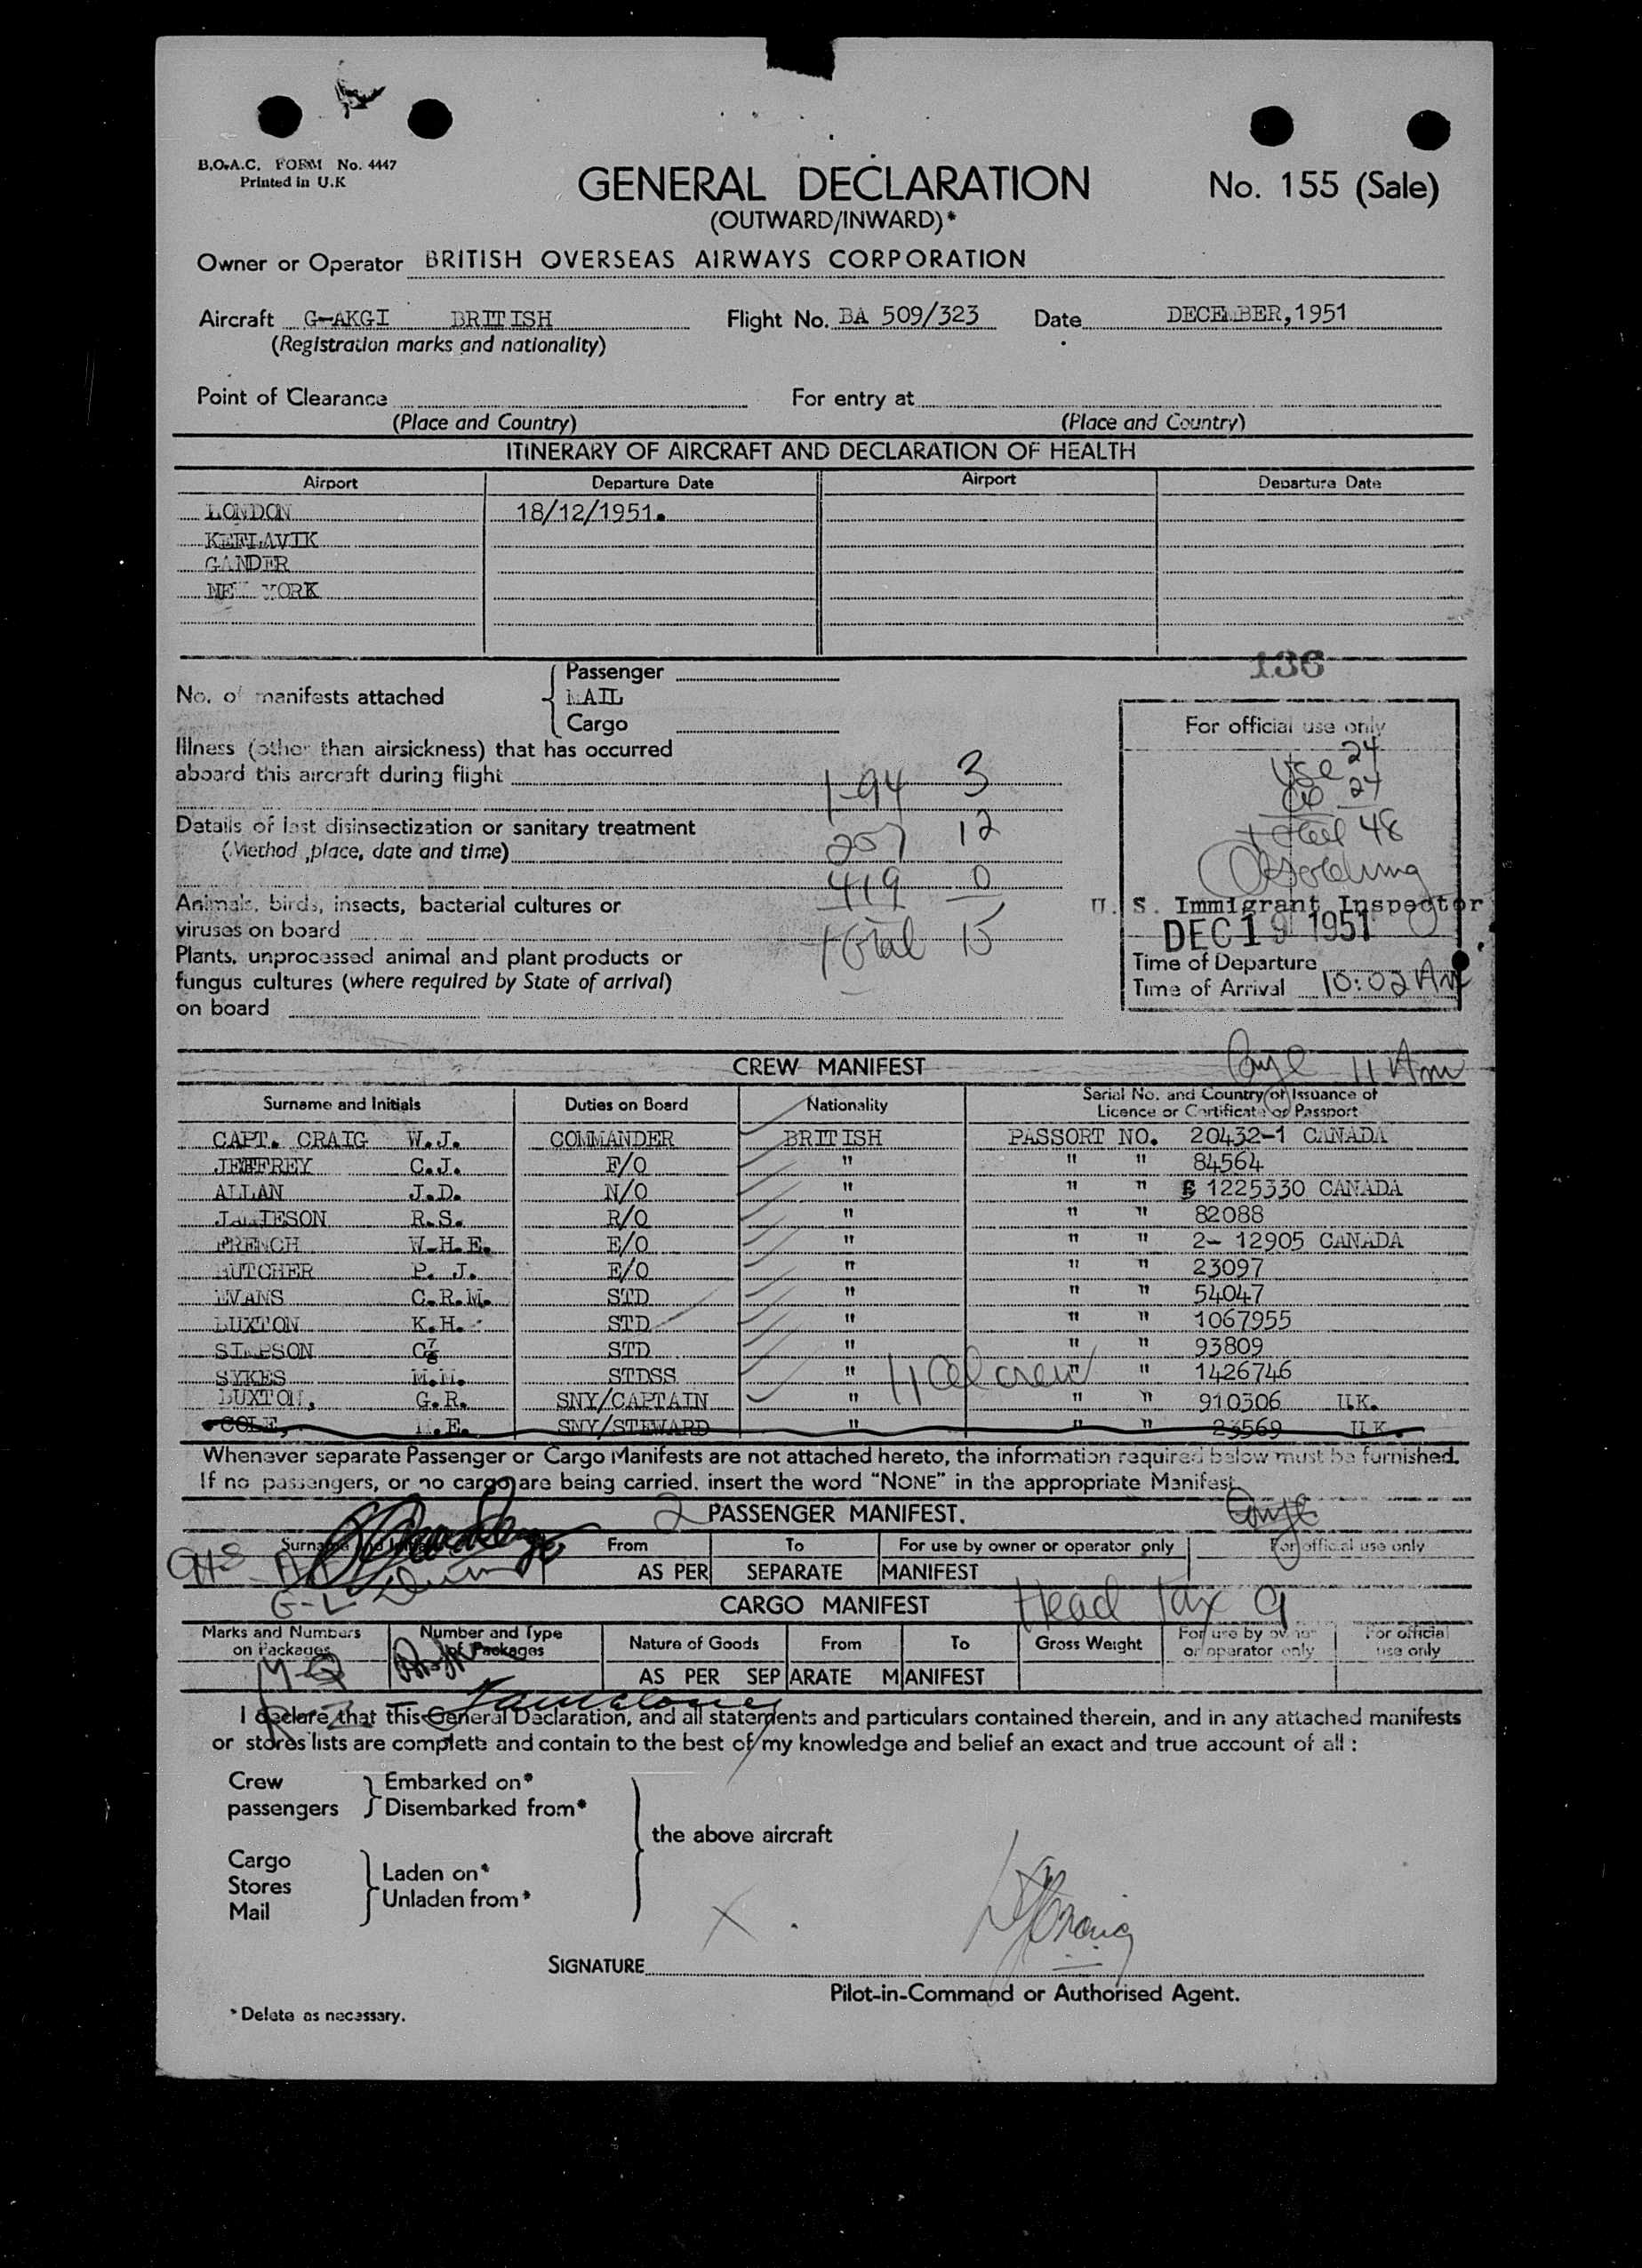 B.O.A.C. FORM No. 4447
Printed in U.K
GENERAL DECLARATION
No. 155 (Sale)
(OUTWARD/INWARD)*
Owner or Operator BRITISH OVERSEAS AIRWAYS CORPORATION
Aircraft G-AKGI BRITISH Flight No. BA 509/323 Date DECEMBER, 1951
(Registration marks and nationality)
Point of Clearance For entry at
(Place and Country) (Place and Country)
ITINERARY OF AIRCRAFT AND DECLARATION OF HEALTH
Airport Departure Date Airport Departure Date
LONDON 18/12/1951.
KEFLAVIK
GANDER
NEW YORK
136
No. of manifests attached
Passenger
MAIL
Cargo
For official use only
Illness (other than airsickness) that has occurred
aboard this aircraft during flight
1-94 3
24
24
Details of last disinsectization or sanitary treatment
(Method, place, date and time)
257 12
total 48
419 0
Animals, birds, insects, bacterial cultures or
viruses on board
total 15
U. S. Immigrant Inspector
DEC 19 1951
Plants, unprocessed animal and plant products or
fungus cultures (where required by State of arrival)
on board
Time of Departure
Time of Arrival 10:02 AM
11 Am
CREW MANIFEST
Surname and Initials Duties on Board Nationality Serial No. and Country of Issuance of
Licence or Certificate or Passport
CAPT. CRAIG W.J. COMMANDER BRITISH PASSORT NO. 20432-1 CANADA
JEFFREY C.J. F/O " " " 84564
ALLAN J.D. N/O " " " 1225330 CANADA
JAMIESON R.S. R/O " " " 82088
FRENCH W.H.E. E/O " " " 2- 12905 CANADA
BUTCHER P. J. E/O " " " 23097
EVANS C.R.M. STD " " " 54047
LUXTON K.H. STD " " " 1067955
SIMPSON STD " " " 93809
SYKES M.M. STDSS " 11 crew " " 1426746
BUXTON, G.R. SNY/CAPTAIN " " " 910306 U.K.
COLE, SNY/STEWARD " " " 23569 U.K.
Whenever separate Passenger or Cargo Manifests are not attached hereto, the information required below must be furnished.
If no passengers, or no cargo are being carried, insert the word "NONE" in the appropriate Manifest
2 PASSENGER MANIFEST.
Surname and Initials From To For use by owner or operator only For official use only
AS PER SEPARATE MANIFEST
G-L
CARGO MANIFEST
Head Tax 9
Marks and Numbers on Packages Number and Type of Packages Nature of Goods From To Gross Weight For use by owner or operator only For official use only
M-Q
AS PER SEPARATE MANIFEST
I declare that this General Declaration, and all statements and particulars contained therein, and in any attached manifests
or stores lists are complete and contain to the best of my knowledge and belief an exact and true account of all :
Crew
passengers
Embarked on*
Disembarked from*
the above aircraft
Cargo
Stores
Mail
Laden on*
Unladen from*
X
WJCraig
SIGNATURE
Pilot-in-Command or Authorised Agent.
* Delete as necessary.